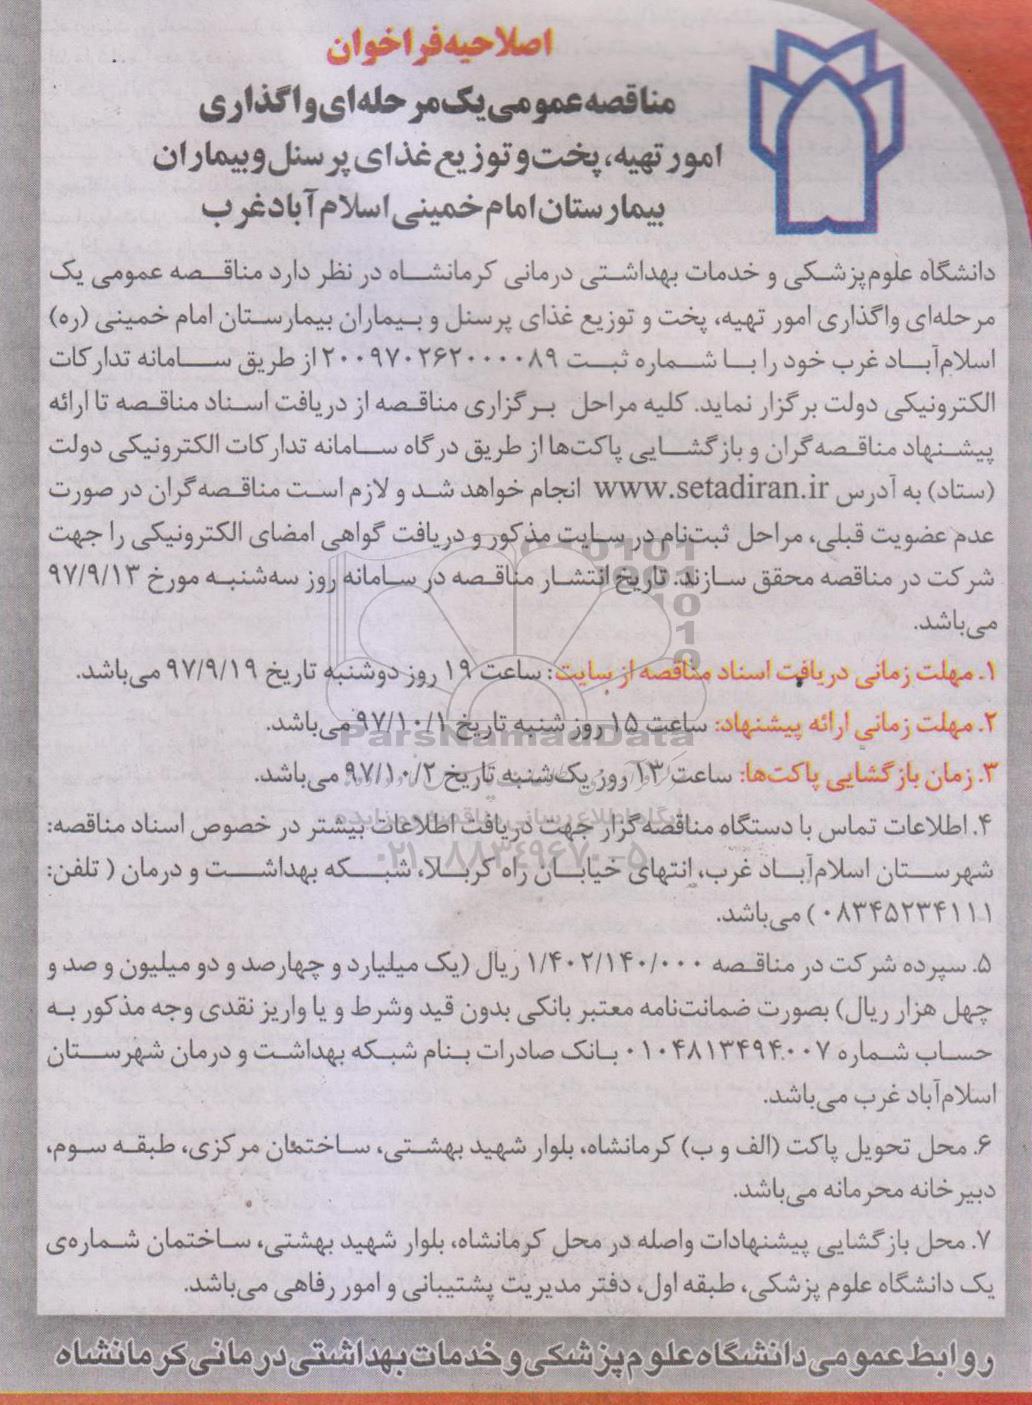 اصلاحیه فراخوان
مناقصه عمومی یک مرحله‌ای واگذاری
امور تهیه، پخت و توزیع غذای پرسنل و بیماران
بیمارستان امام خمینی اسلام آباد غرب
دانشگاه علوم پزشکی و خدمات بهداشتی درمانی کرمانشاه در نظر دارد مناقصه عمومی یک
مرحله‌ای واگذاری امور تهیه، پخت و توزیع غذای پرسنل و بیماران بیمارستان امام خمینی (ره)
اسلام‌آباد غرب خود را با شماره ثبت ۲۰۰۹۷۰۲۶۲۰۰۰۰۸۹ از طریق سامانه تدارکات
الکترونیکی دولت برگزار نماید. کلیه مراحل برگزاری مناقصه از دریافت اسناد مناقصه تا ارائه
پیشنهاد مناقصه‌گران و بازگشایی پاکت‌ها از طریق درگاه سامانه تدارکات الکترونیکی دولت
(ستاد) به آدرس www.setadiran.ir انجام خواهد شد و لازم است مناقصه‌گران در صورت
عدم عضویت قبلی، مراحل ثبت‌نام در سایت مذکور و دریافت گواهی امضای الکترونیکی را جهت
شرکت در مناقصه محقق سازند. تاریخ انتشار مناقصه در سامانه روز سه‌شنبه مورخ ۹۷/۹/۱۳
می‌باشد.
۱. مهلت زمانی دریافت اسناد مناقصه از سایت: ساعت ۱۹ روز دوشنبه تاریخ ۹۷/۹/۱۹ می‌باشد.
۲. مهلت زمانی ارائه پیشنهاد: ساعت ۱۵ روز شنبه تاریخ ۹۷/۱۰/۱ می‌باشد.
ParsNamadData
۳. زمان بازگشایی پاکت‌ها: ساعت ۱۳ روز یک‌شنبه تاریخ ۹۷/۱۰/۲ می‌باشد.
۴. اطلاعات تماس با دستگاه مناقصه‌گزار جهت دریافت اطلاعات بیشتر در خصوص اسناد مناقصه:
۰۲۱-۸۸۳۴۹۶۷۰-۵
شهرستان اسلام‌آباد غرب، انتهای خیابان راه کربلا، شبکه بهداشت و درمان ( تلفن:
۰۸۳۴۵۲۳۴۱۱۱ ) می‌باشد.
۵. سپرده شرکت در مناقصه ۱/۴۰۲/۱۴۰/۰۰۰ ریال (یک میلیارد و چهارصد و دو میلیون و صد و
چهل هزار ریال) بصورت ضمانت‌نامه معتبر بانکی بدون قید وشرط و یا واریز نقدی وجه مذکور به
حساب شماره ۰۱۰۴۸۱۳۴۹۴۰۰۷ بانک صادرات بنام شبکه بهداشت و درمان شهرستان
اسلام‌آباد غرب می‌باشد.
۶. محل تحویل پاکت (الف و ب) کرمانشاه، بلوار شهید بهشتی، ساختمان مرکزی، طبقه سوم،
دبیرخانه محرمانه می‌باشد.
۷. محل بازگشایی پیشنهادات واصله در محل کرمانشاه، بلوار شهید بهشتی، ساختمان شماره‌ی
یک دانشگاه علوم پزشکی، طبقه اول، دفتر مدیریت پشتیبانی و امور رفاهی می‌باشد.
روابط عمومی دانشگاه علوم پزشکی و خدمات بهداشتی درمانی کرمانشاه